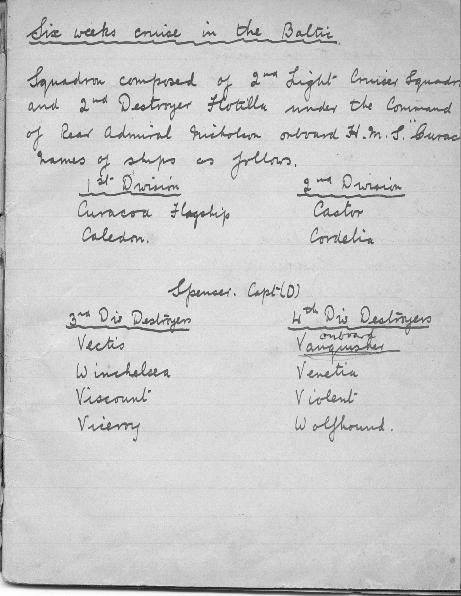 Six weeks cruise in the Baltic.
Squadron composed of 2nd Light Cruiser Squadr
and 2nd Destroyer Flotilla under the Command
of Rear Admiral Nicholson onboard H.M.S. "Curac
Names of ships as follows.
1st Division 2nd Division
Curacoa Flagship Castor
Caledon. Cordelia
Spenser. Capt (D)
3rd Div Destroyers 4th Div Destroyers
onboard
Vectis Vanquisher
Winchelsea Venetia
Viscount Violent
Viceroy Wolfhound.